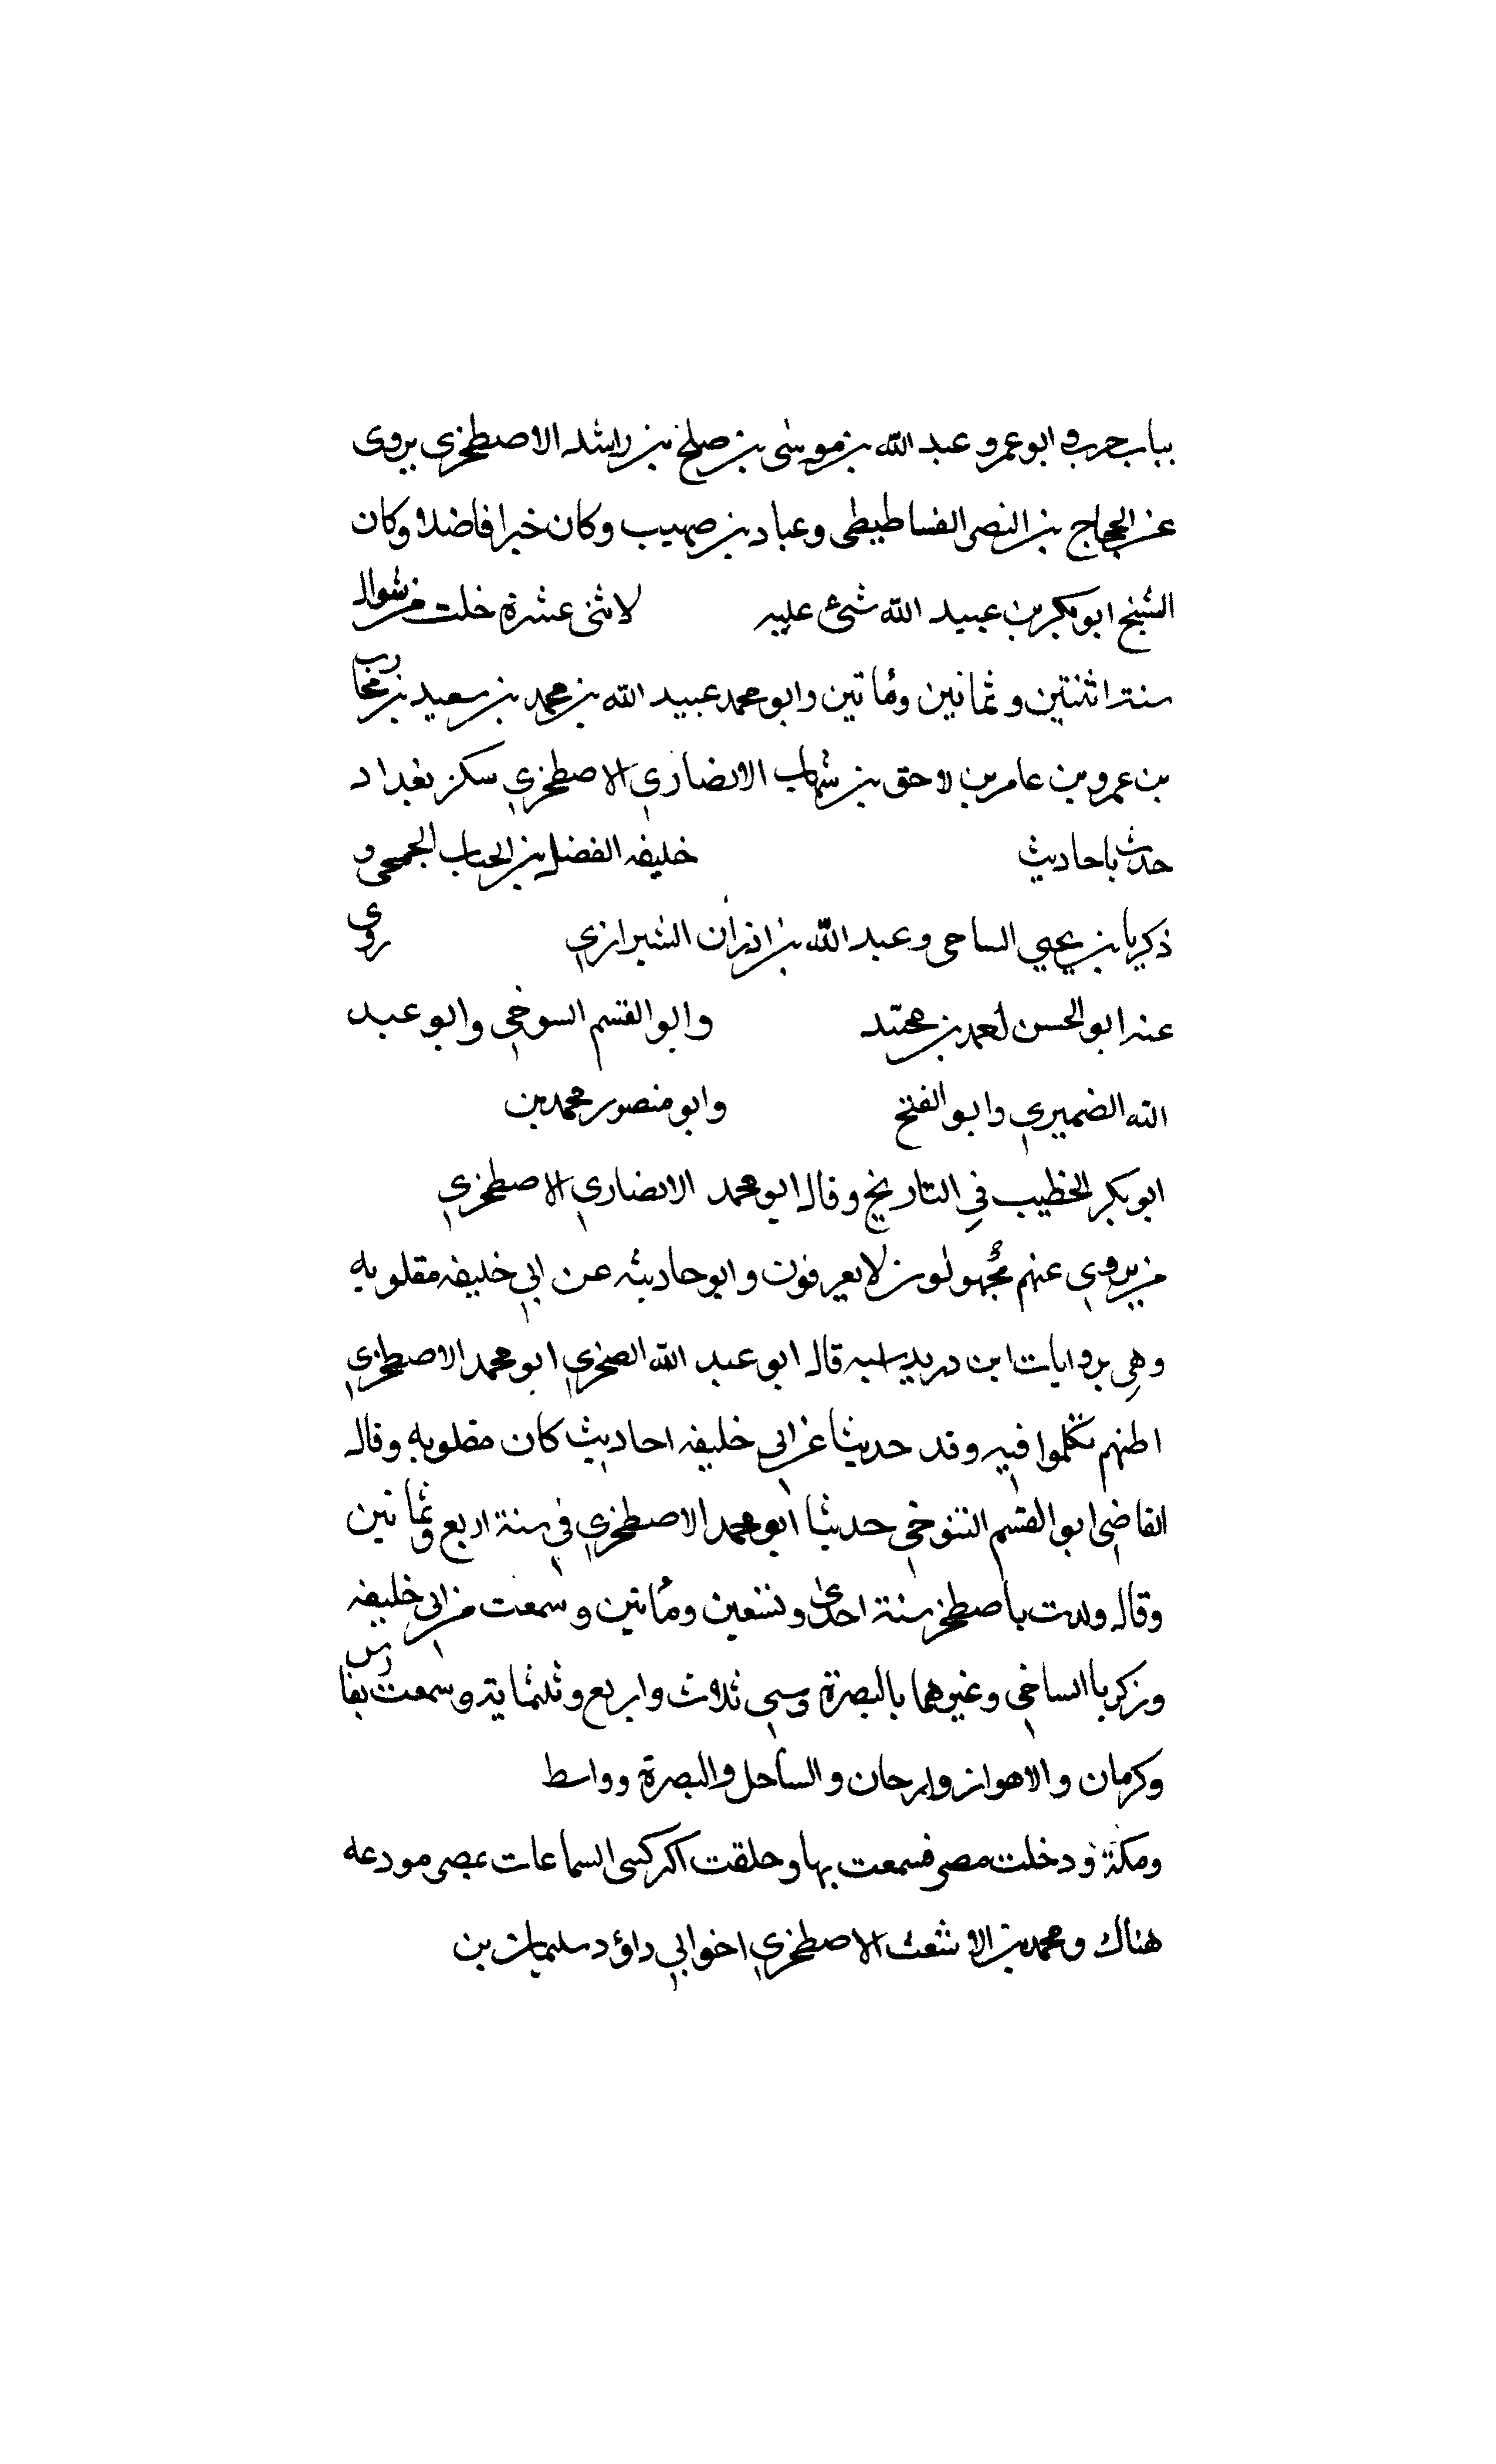 بباب حرب و ابو عمرو عبد الله بن موسى بن صلح بن راشد الاصطخري يروى
عن الحجاج بن النصر الفساطيطى وعباد بن صهيب وكان خيرا فاضلا وكان
الشيخ ابو بكر بن عبيد الله شئ عليه لاثنى عشرة خلت من شوال
سنة اثنتين و ثمانين ومأتين وابو محمد عبيد الله بن محمد بن سعيد بن محارب
بن عمرو بن عامر بن لاحق بن شهاب الانصاري الاصطخري سكن بغداد
حدث باحاديث خليفه الفضل بن الحباب الجمحى و
ذكريا بن يحيي الساحى وعبد الله بن اذران الشيرازي روى
عنه ابو الحسن احمد بن محمد وابو القسم السوخي وابو عبد
الله الضميري وابو الفتح وابو منصور محمد بن
ابو بكر الخطيب في التاريخ وقال ابو محمد الانصاري الاصطخري
من يروي عنهم مجهولون لا يعرفون وابو حاديثه عن ابي خليفه مقلوبه
وهي بروايات ابن دريد اسبه قال ابو عبد الله الصخري ابو محمد الاصطخري
اطنهم تكلموا فيه وقد حدثنا عن ابي خليفه احاديث كان مقلوبه وقال
القاضي ابو القسم التنوخي حدثنا ابو محمد الاصطخري في سنة اربع وثمانين
وقال ولدت باصطخر سنة احدى وتسعين ومأتين وسمعت من ابي خليفه
وزكريا الساخي وغيرهما بالبصرة وسني ثلاث واربع وثلثماية وسمعت بفارس
وكرمان والاهواز وارجان والساحل والبصرة وواسط
ومكة ودخلت مصر فسمعت بها وحلقت اكر كسى السماعات بمصر مودعه
هناك ومحمد بن الاشعث الاصطخري اخو ابي داؤد سليمان بن